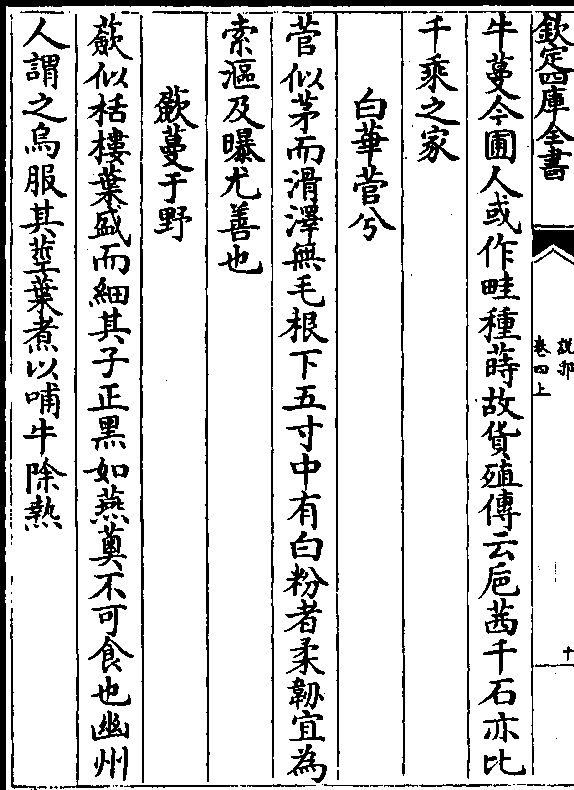 欽定四庫全書
說郛
卷四上
十
牛蔓今圃人或作畦種蒔故貨殖傳云巵茜千石亦比
千乘之家
白華菅兮
菅似茅而滑澤無毛根下五寸中有白粉者柔韌宜為
索漚及曝尤善也
蘞蔓于野
蘞似栝樓葉盛而細其子正黑如燕薁不可食也幽州
人謂之烏服其莖葉煮以哺牛除熱